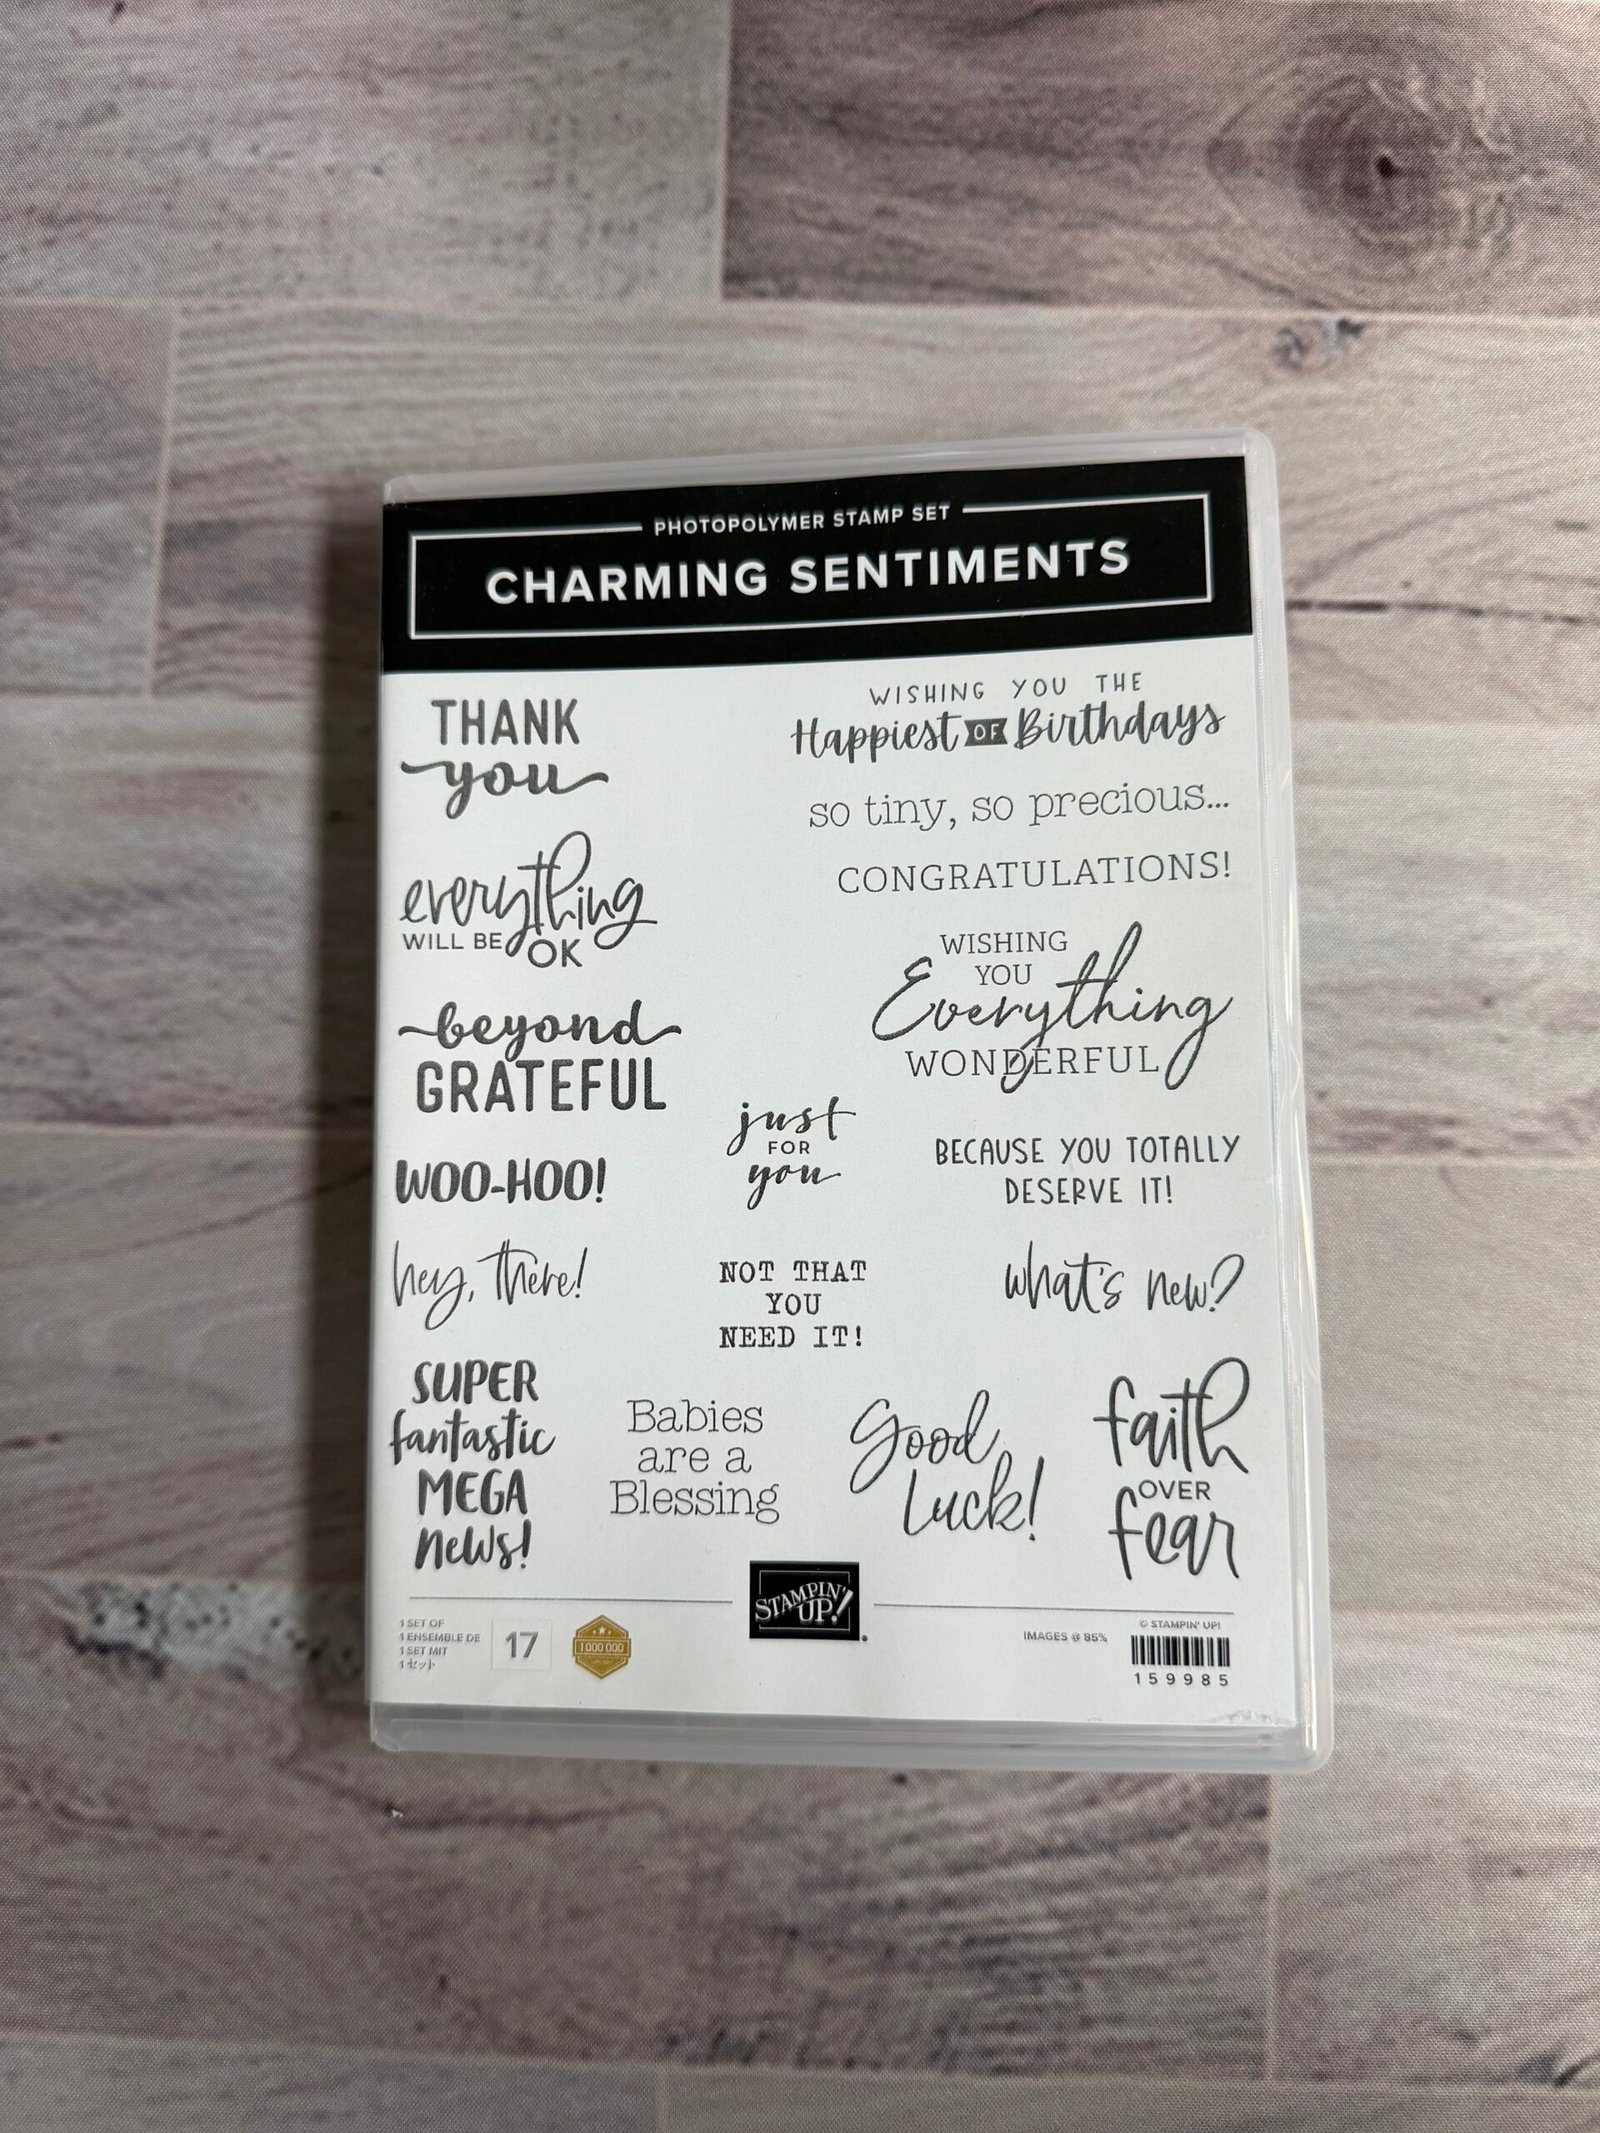 PHOTOPOLYMER STAMP SET
CHARMING SENTIMENTS
THANK
you
WISHING YOU THE
Happiest OF Birthdays
so tiny, so precious...
CONGRATULATIONS!
everything
WILL BE OK
WISHING
YOU
Everything
WONDERFUL
beyond
GRATEFUL
just
FOR
you
BECAUSE YOU TOTALLY
DESERVE IT!
WOO-HOO!
hey, there!
NOT THAT
YOU
NEED IT!
what's new?
SUPER
fantastic
MEGA
news!
Babies
are a
Blessing
Good
Luck!
faith
OVER
fear
STAMPIN'
UP!
1 SET OF
1 ENSEMBLE DE
1 SET MIT
1セット
17
1 000 000
IMAGES @ 85%
© STAMPIN' UP!
159985